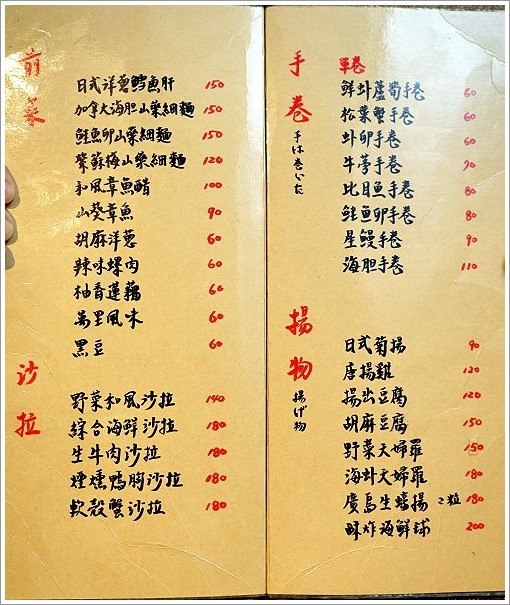 前菜
日式洋蔥鱈魚肝 150
加拿大海胆山藥細麵 150
鮭魚卵山藥細麵 150
紫蘇梅山藥細麵 120
和風章魚醋 100
山葵章魚 90
胡麻洋蔥 60
辣味螺肉 60
柚香蓮藕 60
萬里風味 60
黑豆 60
沙拉
野菜和風沙拉 140
綜合海鮮沙拉 180
生牛肉沙拉 180
煙燻鴨胸沙拉 180
軟殼蟹沙拉 180
手卷
手は巻いた
單卷
鮮蚪蘆筍手卷 60
松葉蟹手卷 60
蚪卵手卷 60
牛蒡手卷 70
比目魚手卷 80
鮭魚卵手卷 80
星鰻手卷 90
海胆手卷 110
揚物
揚げ物
日式菊揚 90
唐揚雞 120
揚出豆腐 120
胡麻豆腐 150
野菜天婦羅 150
海蚪天婦羅 180
廣島生蠔揚 2粒 180
酥炸海鮮球 200